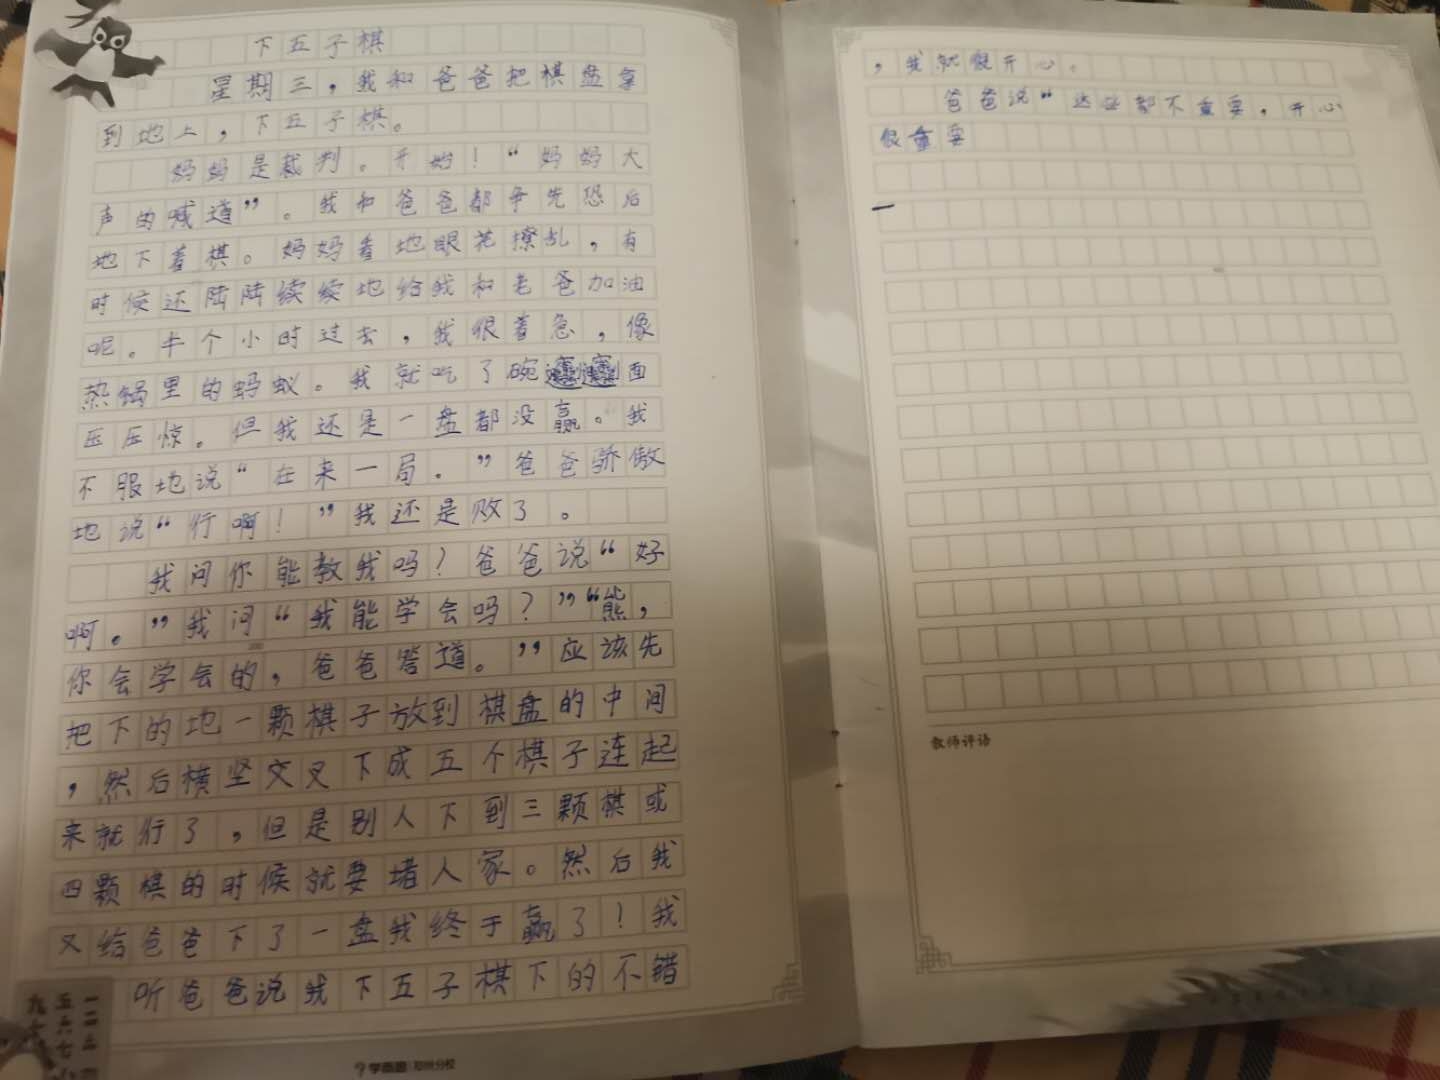 下五子棋
星期三，我和爸爸把棋盘拿
到地上，下五子棋。
妈妈是裁判。开始！“妈妈大
声的喊道”。我和爸爸都争先恐后
地下着棋。妈妈看地眼花撩乱，有
时候还陆陆续续地给我和老爸加油
呢。半个小时过去，我很着急，像
热锅里的蚂蚁。我就吃了碗𰻝𰻝面
压压惊。但我还是一盘都没赢。我
不服地说“在来一局。”爸爸骄傲
地说“行啊！”我还是败了。
我问你能教我吗？爸爸说“好
啊。”我问“我能学会吗？”“熊，
你会学会的，爸爸答道。”应该先
把下的地一颗棋子放到棋盘的中间
，然后横坚交叉下成五个棋子连起
来就行了，但是别人下到三颗棋或
四颗棋的时候就要堵人家。然后我
又给爸爸下了一盘我终于赢了！我
听爸爸说我下五子棋下的不错
九 五 一
六 二
七 三
学而思 郑州分校
，我就很开心。
爸爸说“这些都不重要，开心
很重要
教师评语